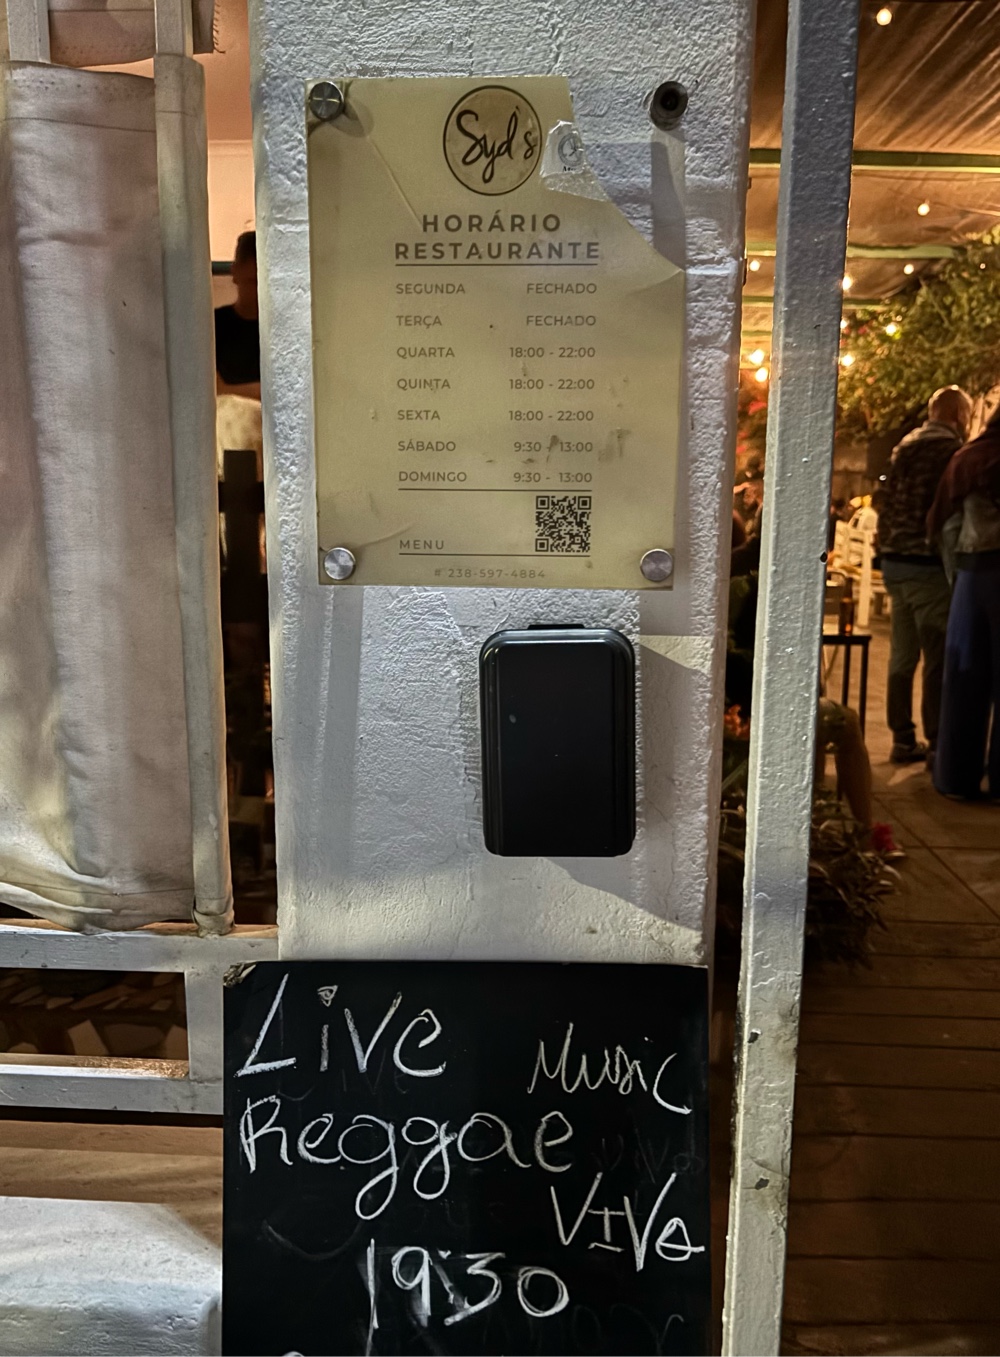 Syd's
HORÁRIO
RESTAURANTE
SEGUNDA FECHADO
TERÇA FECHADO
QUARTA 18:00 - 22:00
QUINTA 18:00 - 22:00
SEXTA 18:00 - 22:00
SÁBADO 9:30 - 13:00
DOMINGO 9:30 - 13:00
MENU
# 238-597-4884
Live
Music
Reggae
VIVO
19:30